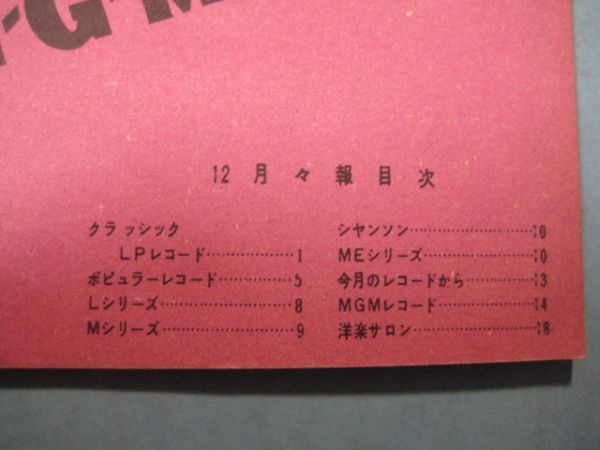 12月々報目次
クラッシック
LPレコード…………………1
ポピュラーレコード……………5
Lシリーズ………………………8
Mシリーズ………………………9
シヤンソン………………………10
MEシリーズ……………………10
今月のレコードから……………13
MGMレコード…………………14
洋楽サロン………………………18